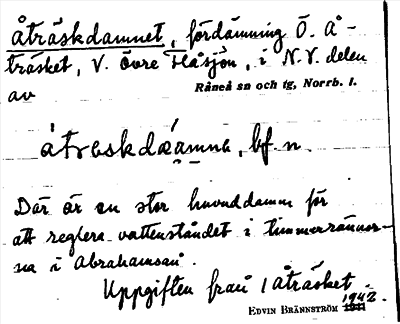 Åträskdamnet, fördämning Ö. Å-
träsket, V. Övre Håsjön, i N.V. delen
av
Råneå sn och tg, Norrb. l.
åtraskdæ̀ámna, bf. n.
Där är en stor huvuddamm för
att reglera vattenståndet i timmerrännor-
na i Abrahamsån.
Uppgiften från 1 Åträsket.
EDVIN BRÄNNSTRÖM 1942.